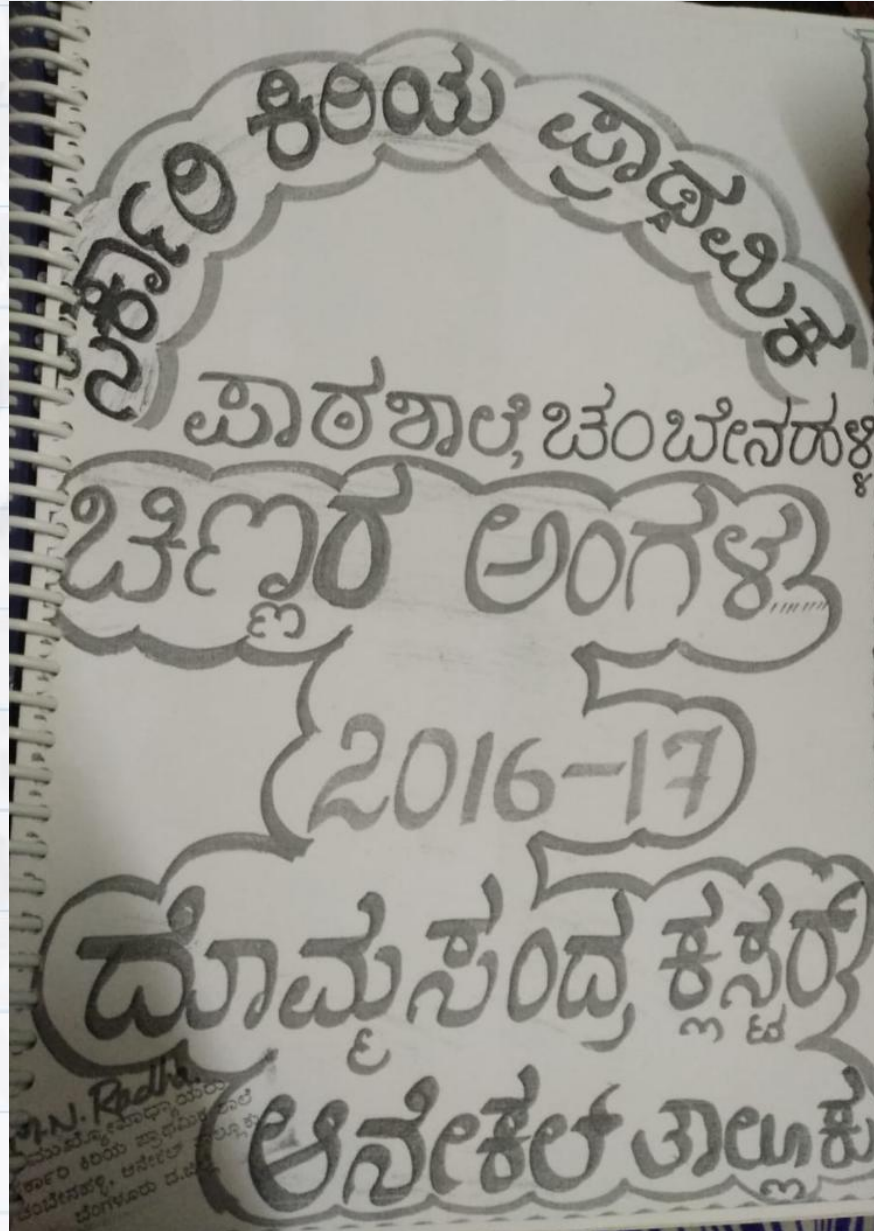 ಸರ್ಕಾರಿ ಕಿರಿಯ ಪ್ರಾಥಮಿಕ
ಪಾಠಶಾಲೆ, ಚಂಬೇನಹಳ್ಳಿ
ಚಿಣ್ಣರ ಅಂಗಳ
2016-17
ದೊಮ್ಮಸಂದ್ರ ಕ್ಲಸ್ಟರ್
ಆನೇಕಲ್ ತಾಲ್ಲೂಕು
N. Radha
ಮುಖ್ಯೋಪಾಧ್ಯಾಯರು
ಸರ್ಕಾರಿ ಕಿರಿಯ ಪ್ರಾಥಮಿಕ ಶಾಲೆ
ಚಂಬೇನಹಳ್ಳಿ, ಆನೇಕಲ್ ತಾಲ್ಲೂಕು
ಬೆಂಗಳೂರು ದ.ಜಿಲ್ಲೆ